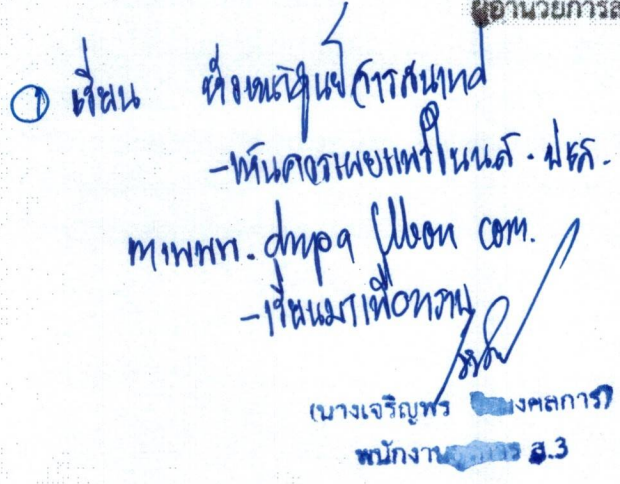 ผู้อำนวยการส
① เรียน หัวหน้าศูนย์สารสนเทศ
-เห็นควรเผยแพร่ในนส. ปชส.
com.
-เรียนมาเพื่อทราบ
(นางเจริญพร งคลการ)
พนักงาน ส.3